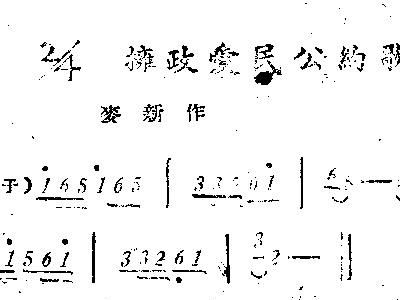 2/4 擁政愛民公約歌
麥新作
于) 165165 | 332 61 | 6 —
1561 | 33261 | 32 — ||